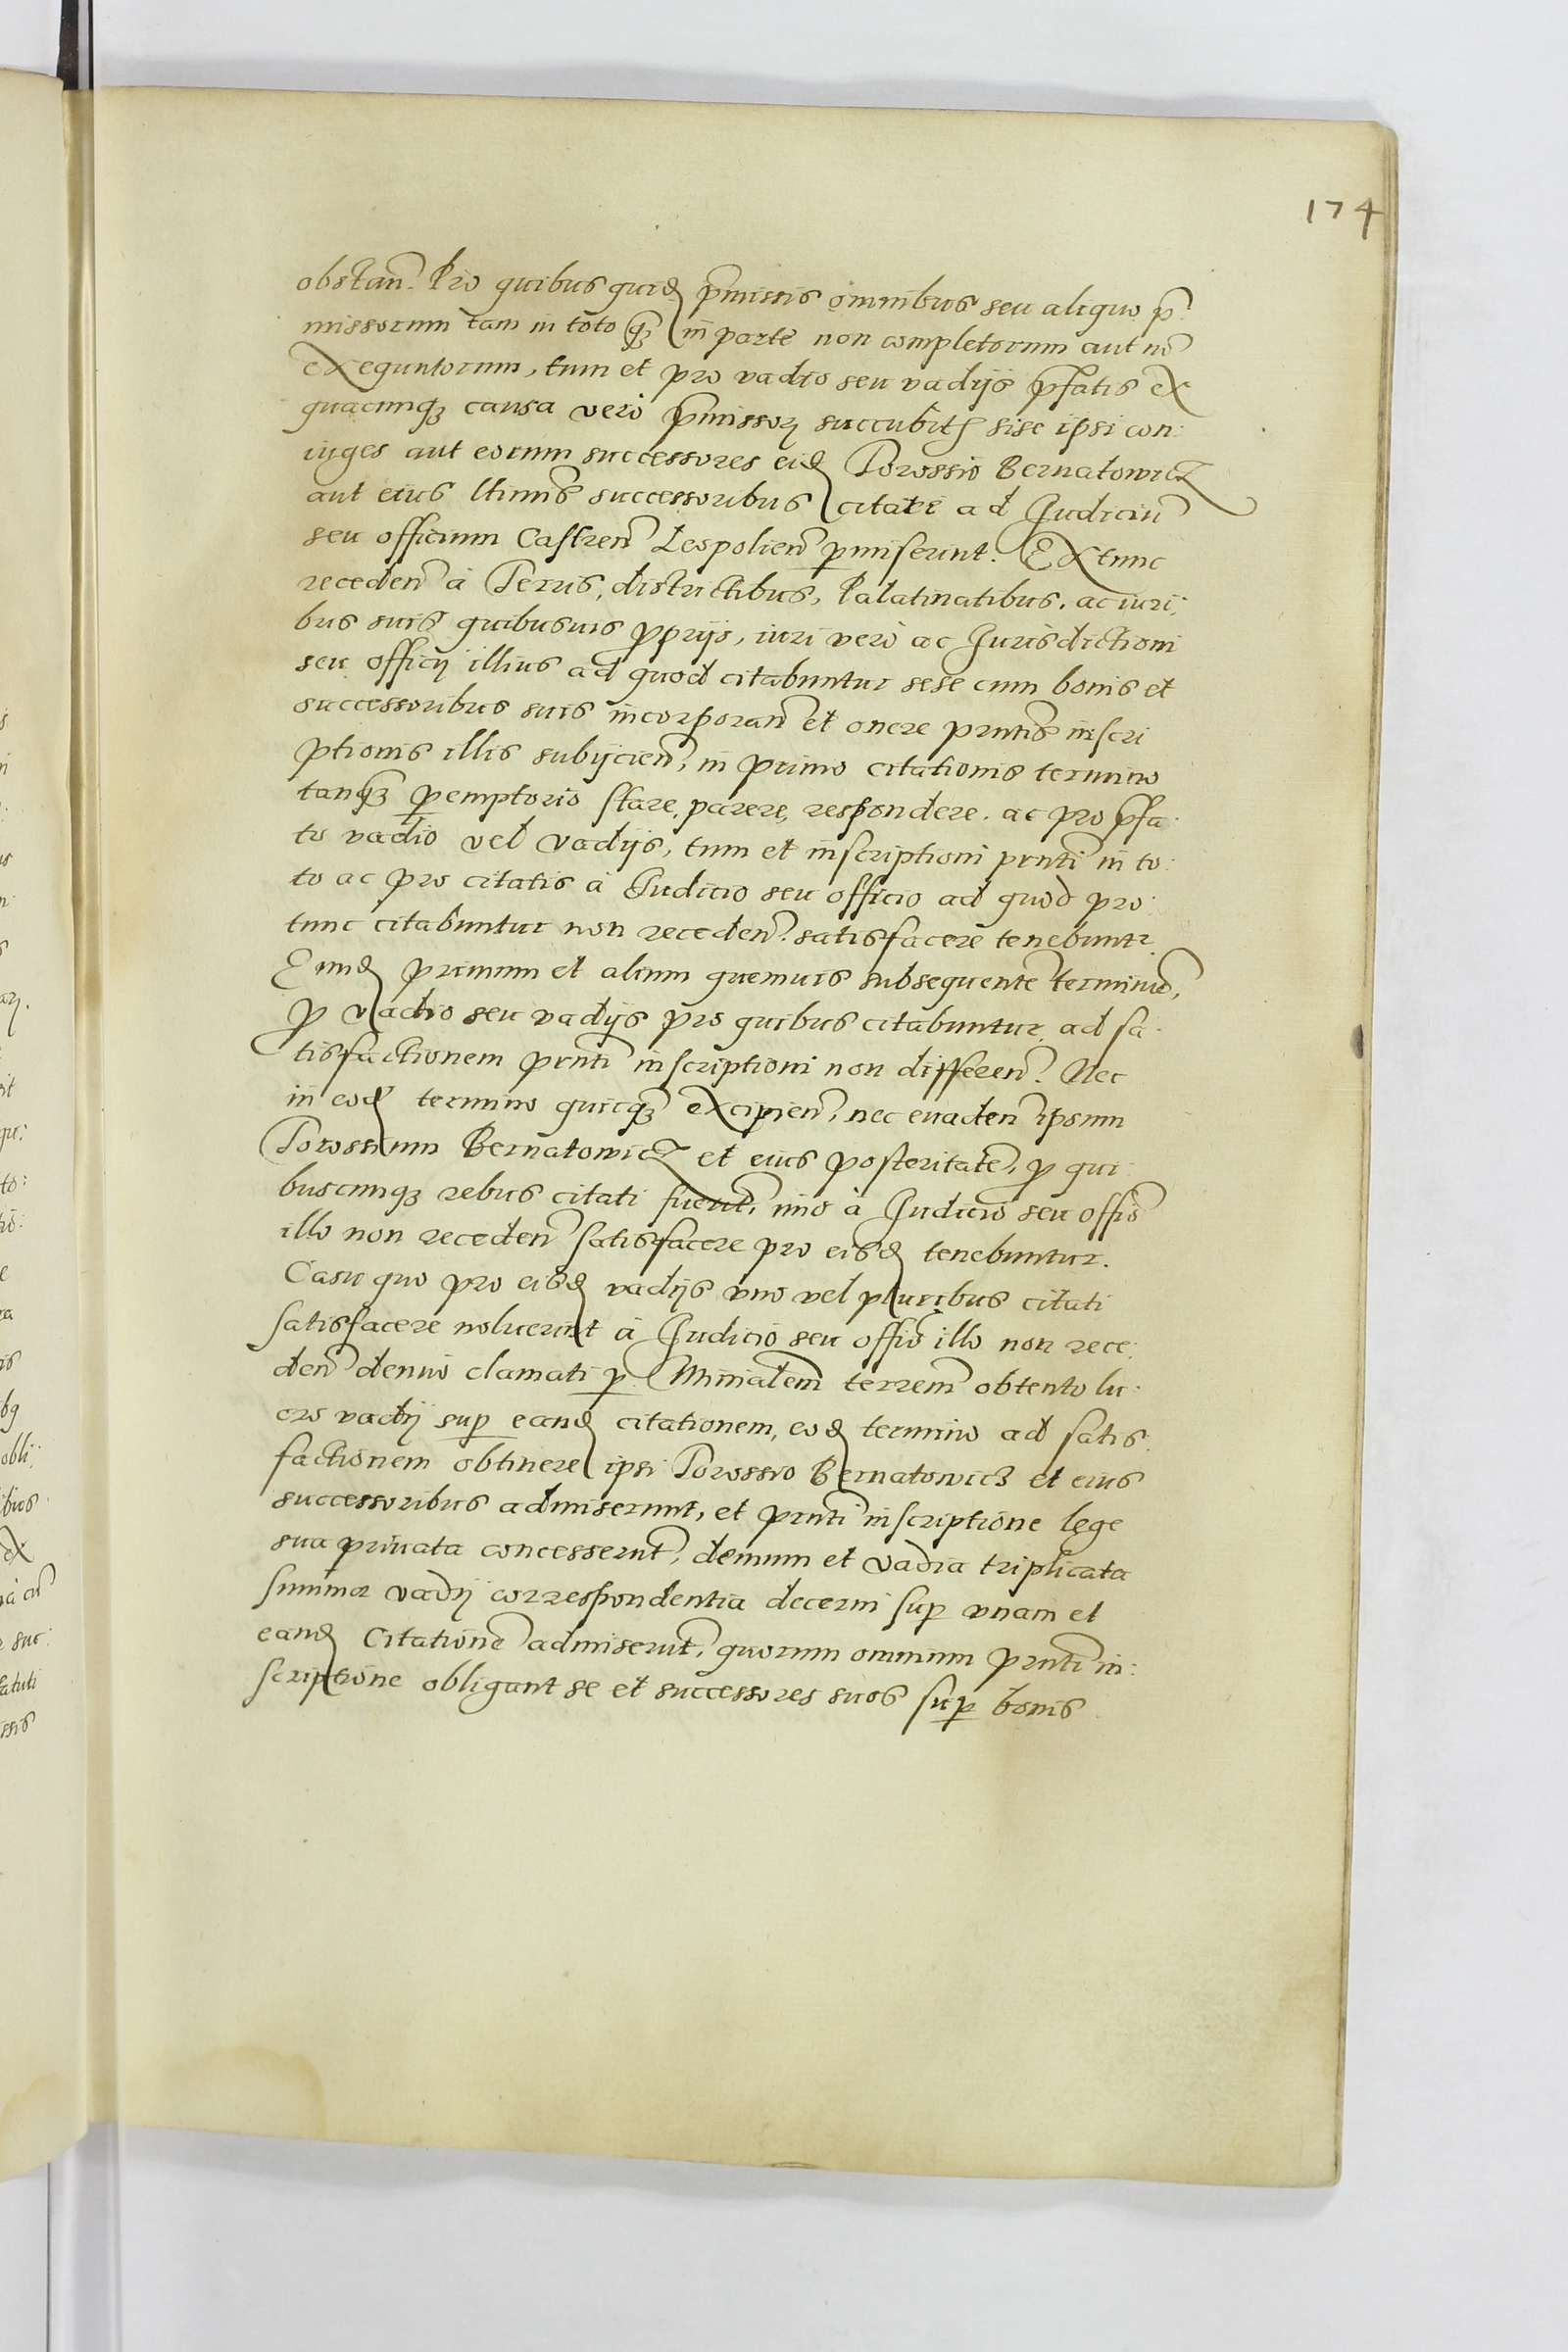 174
obstan̄. Pro quibus quid̄ p̄missis omnibus seu aliquo p̄:
missorum tam in toto q̄ꝫ in parte non completorum aut nō
exequutorum, tum et pro vadio seu vadijs p̄fatis ex
quacunqꝫ causa vero p̄missoꝝ succubitꝭ sise ipsi con:
iuges aut eorum successores eid̄ Torossio Bernatowicz
aut eius ltimis̄ successoribus citati ad Judiciū
seu officium Castren̄ Leopolien̄ ꝑmiserint. Extunc
receden̄ à Terris, districtibus, Palatinatibus, ac iuri:
bus suis quibusuis ꝓprijs, iuri verò ac Jurisdictioni
seu officij illius ad quod citabuntur sese cum bonis et
successoribus suis incorporan̄ et onere pn̄tis inscri
ptionis illis subijcien̄, in primo citationis termino
tanq̄ꝫ ꝑemptorio stare, parere, respondere. ac pro p̄fa:
to vadio vel vadijs, tum et inscriptioni pn̄ti in to:
to ac pro citatis à Judicio seu officio ad quod pro:
tunc citabuntur non receden̄. satisfacere tenebuntr.
Eund̄ primum et alium quemuis subsequente terminū,
ꝓ vadio seu vadijs pro quibus citabuntur, ad sa:
tisfactionem pn̄ti inscriptioni non differen̄. Nec
in eod̄ termino quicq̄ꝫ excipien̄, nec euaden̄ ipsum
Torossium Bernatowicz et eius posteritatē, ꝓ qui:
buscunqꝫ rebus citati fuerūt, imo à Judicio seu offiō
illo non receden̄ satisfacere pro eisd̄ tenebuntur.
Casu quo pro eisd̄ vadijs vno vel pluribus citati
satisfacere noluerint à Judicio seu offiō illo non rece:
den̄ denuo clamati ꝑ Minialem̄ terrem̄ obtento lu:
cro vadij suꝑ eand̄ citationem, eod̄ termino ad satis:
factionem obtinere ipsi Torossio Bernatowicz et eius
successoribus admiserunt, et pn̄ti inscriptione lege
sua priuata concesserūt, demum et vadia triplicata
summæ vadij correspondentia decerni suꝑ vnam et
eand̄ Citationē admiserūt, quorum omnium pn̄ti in:
scriptione obligant se et successores suos suꝑ bonis